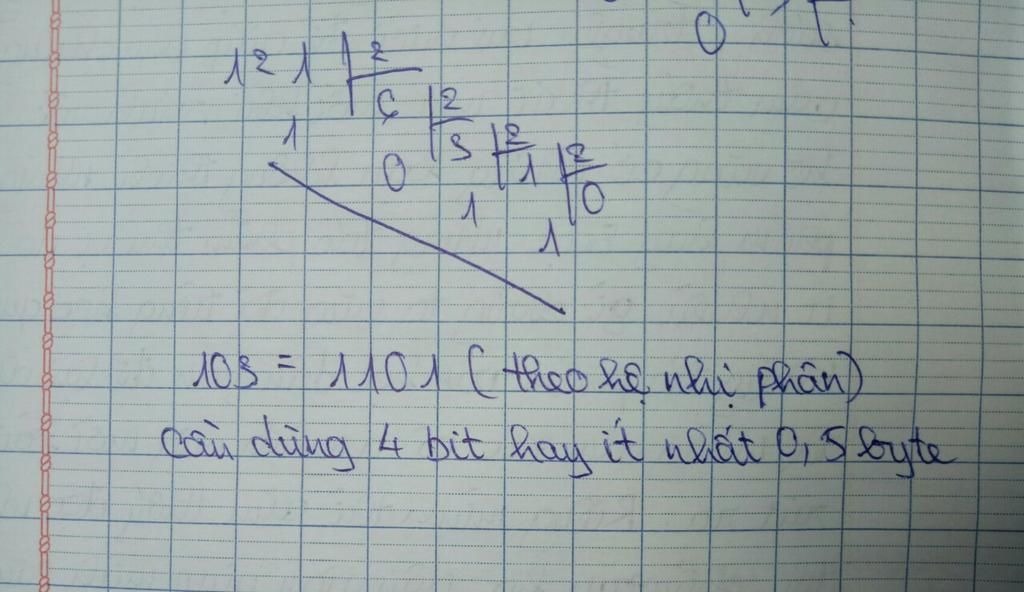 121 2
1 6 2
0 3 2
1 1 2
1 0
103 = 1101 (theo hệ nhị phân)
cần dùng 4 bit hay ít nhất 0,5 byte